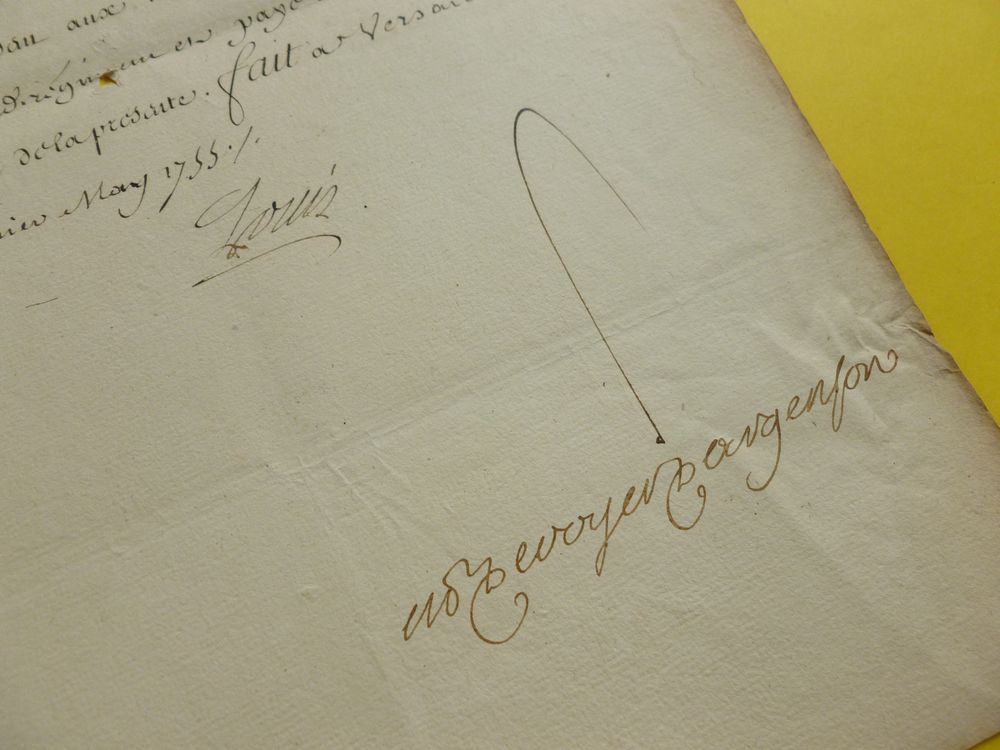 aux
régiment en payé
de la presente. fait a Versail
May 1755 ./.
Louis .
M P de voyer d argenson